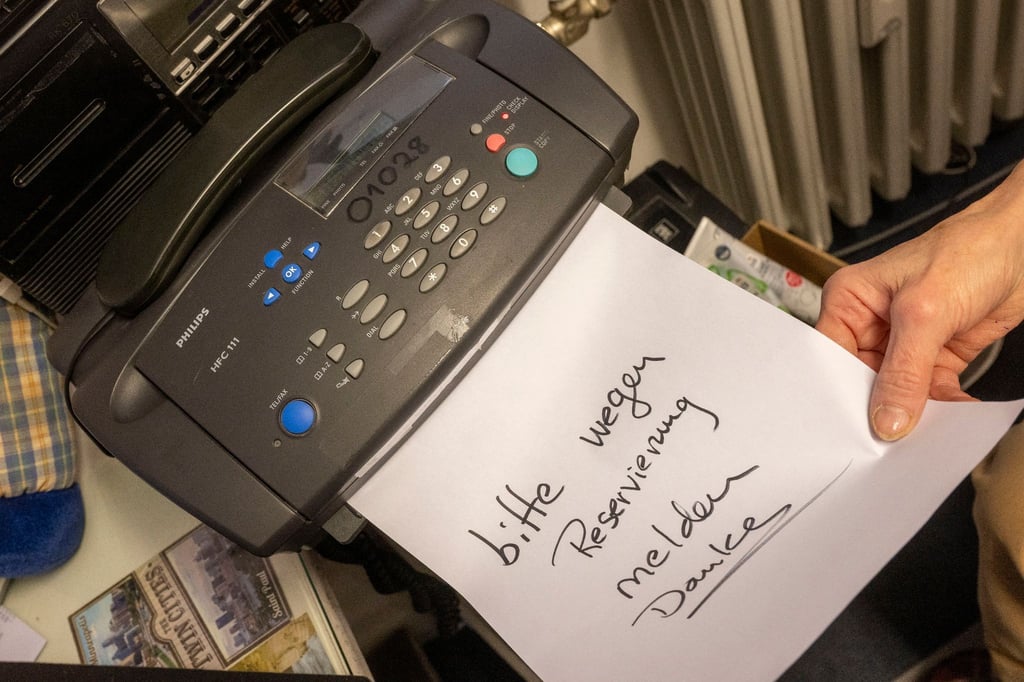 PHILIPS
HFC 111
01028
INSTALL
HELP
OK
FUNCTION
TEL/FAX
FINE/PHOTO
CHECK DISPLAY
STOP
1
ABC 2
DEF 3
GHI 4
JKL 5
MNO 6
PQRS 7
TUV 8
WXYZ 9
*
0
#
R
DIAL
1-9
A-Z
bitte wegen
Reservierung
melden
Danke
Minneapolis
THE
TWIN CITIES
Saint Paul